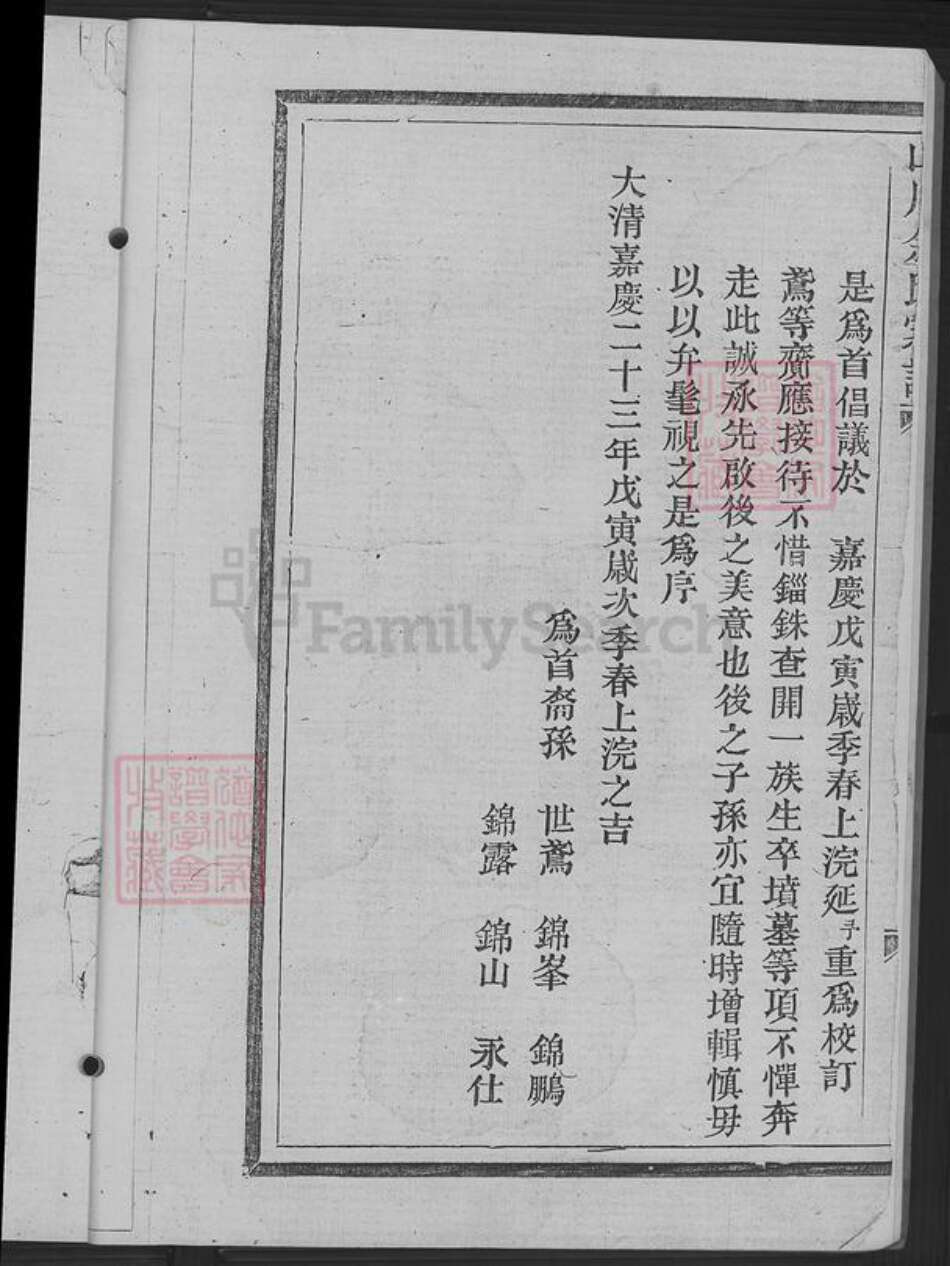 是爲首倡議於　嘉慶戊寅歲季春上浣延予重爲校訂
鳶等齎應接待不惜錙銖查開一族生卒墳墓等項不憚奔
走此誠承先啟後之美意也後之子孫亦宜隨時增輯慎毋
以以弁髦視之是爲序
大清嘉慶二十三年戊寅歲次季春上浣之吉
爲首裔孫　世鳶　錦峯　錦鵬
錦露　錦山　永仕
FamilySearch